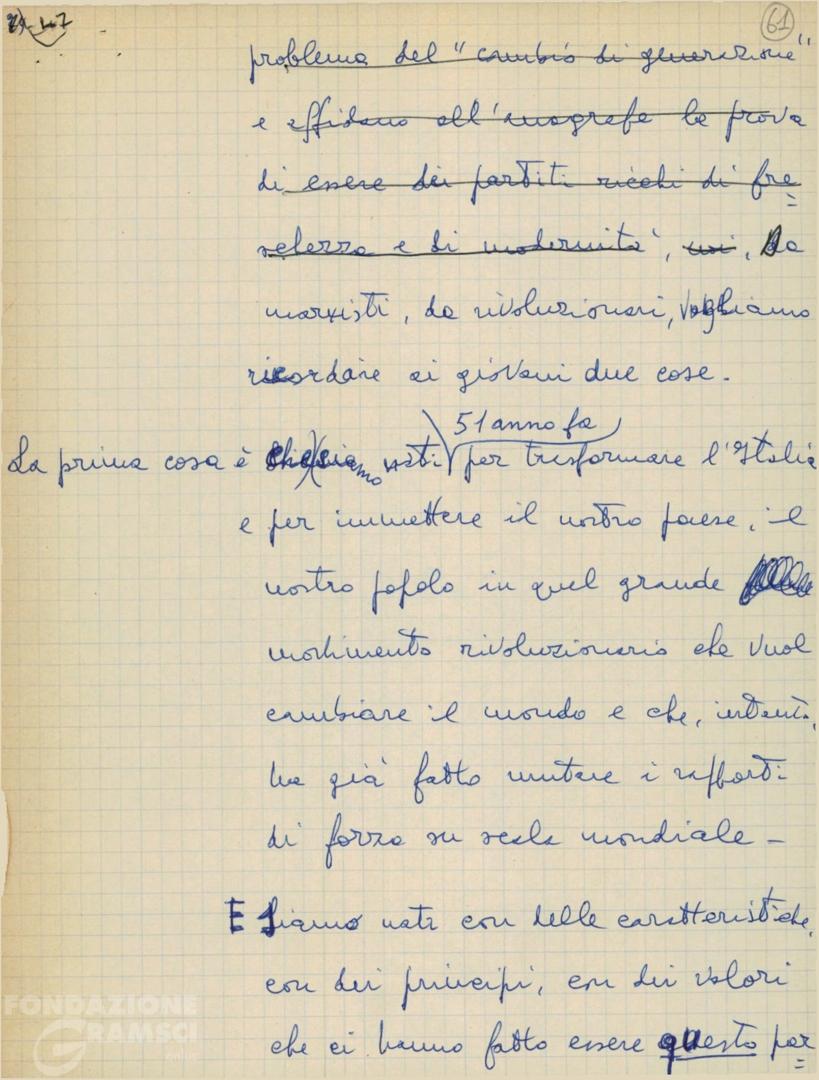 61
problema del "cambio di generazione"
e affidano all'anagrafe la prova
di essere dei partiti ricchi di fre=
schezza e di modernità, noi, Da
marxisti, da rivoluzionari, vogliamo
ricordare ai giovani due cose.
51 anno fa
La prima cosa è che siamo nati per trasformare l'Italia
e per immettere il nostro paese, il
nostro popolo in quel grande
movimento rivoluzionario che vuol
cambiare il mondo e che, intanto,
ha già fatto mutare i rapporti
di forza su scala mondiale –
E Siamo nati con delle caratteristiche,
con dei principi, con dei valori
che ci hanno fatto essere questo par=
FONDAZIONE
GRAMSCI